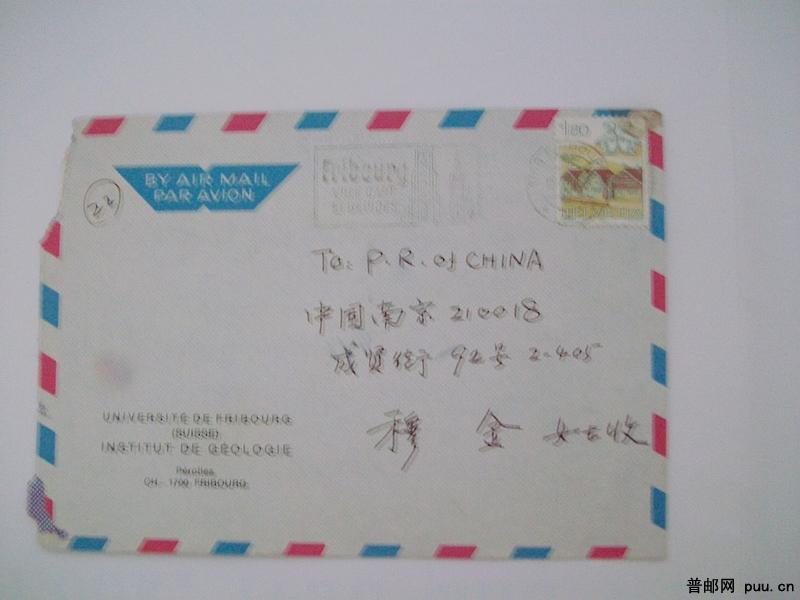 1.80
BY AIR MAIL
PAR AVION
Fribourg
HELVETIA
22
To: P.R. of CHINA
中国南京 210018
成贤街 92号 2-405
穆金 女士收
UNIVERSITÉ DE FRIBOURG
(SUISSE)
INSTITUT DE GÉOLOGIE
Pérolles
CH - 1700 FRIBOURG
普邮网 puu.cn